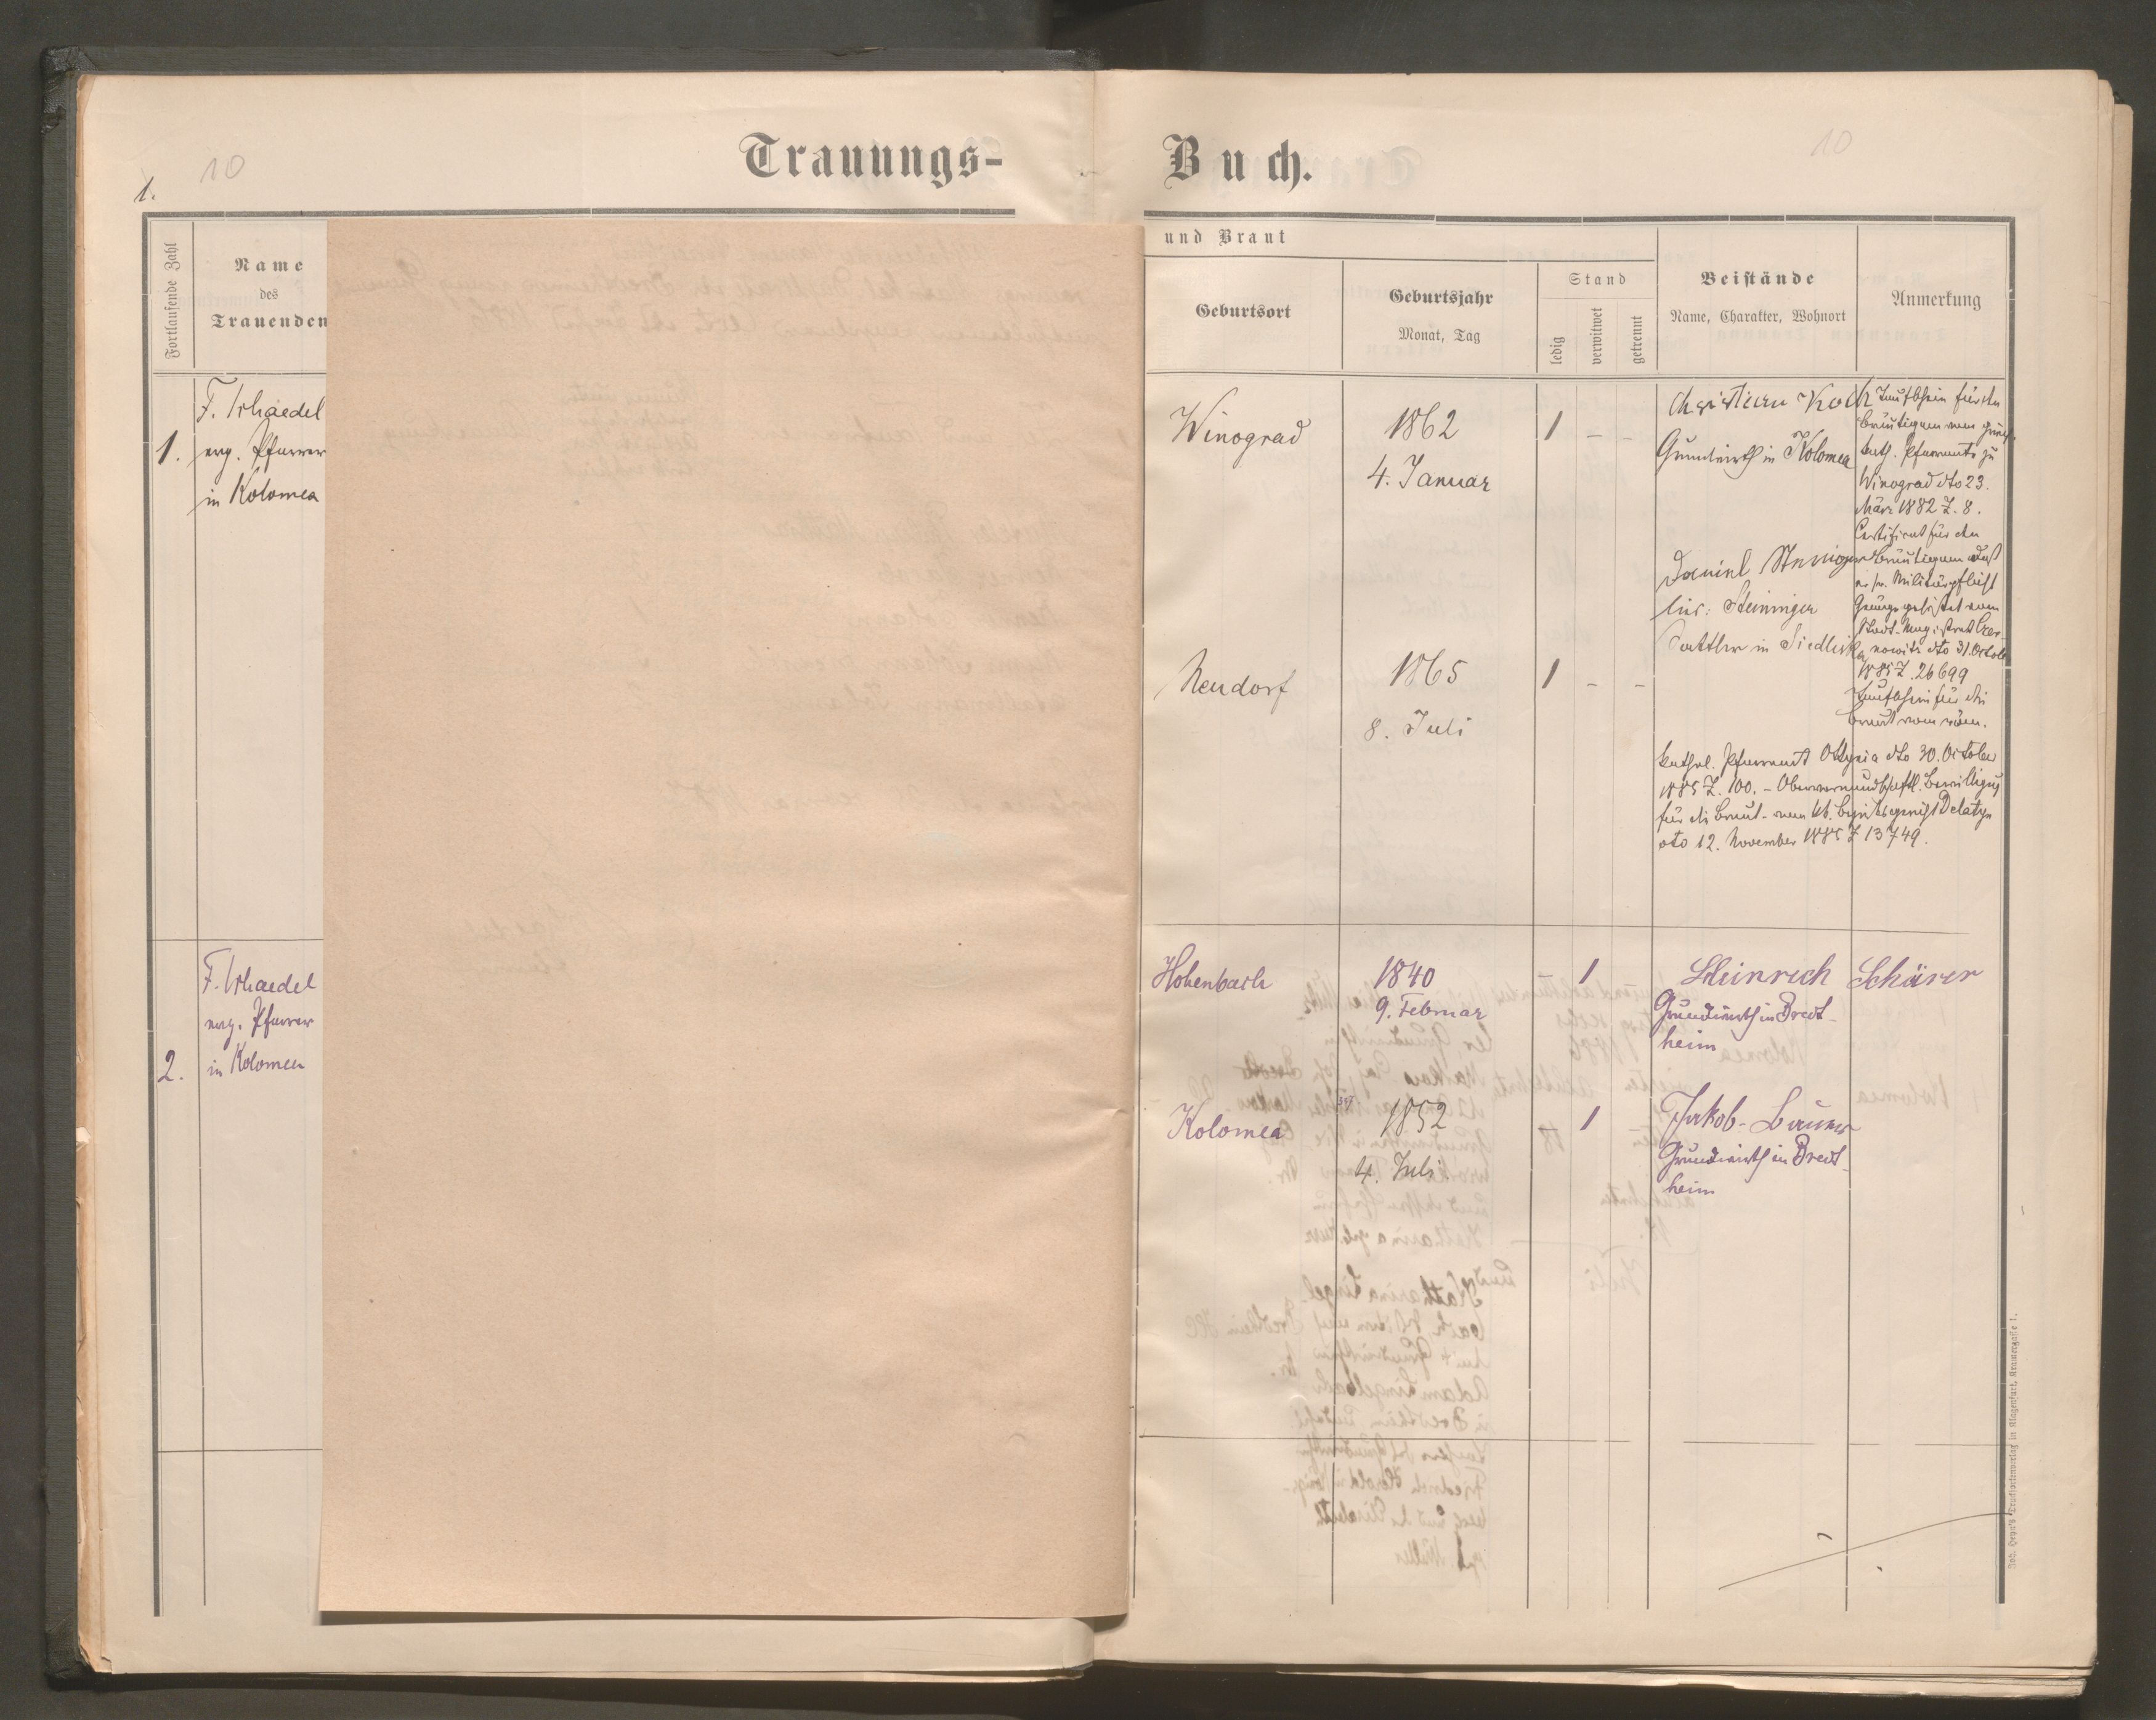 10
10
1.
Trauungs-
Buch.
Fortlaufende Zahl
Name
des
Trauenden
und Braut
Geburtsort
Geburtsjahr
Monat, Tag
Stand
ledig
verwitwet
getrennt
Beistände
Name, Charakter, Wohnort
Anmerkung
1.
F. Schaedel
evg. Pfarrer
in Kolomea
Winograd
1862
4. Januar
1 - -
Christian Koch
Grundwirth in Kolomea
Daniel
lies: Steininger
Sattler in Siedliska
Neudorf
1865
8. Juli
1 - -
Taufschein für den
Bräutigam vom griech.
kath. Pfarramte zu
Winograd dto 23.
März 1882 Z. 8.
Certificat für den
Bräutigam daß
er sr. Militärpflicht
Genüge geleistet vom
Stadt-Magistrat Czer-
nowitz dto 31. Octob
1885 Z. 26699
Taufschein für die
Braut vom röm.
kathol. Pfarramt Ottynia dto 30. October
1885 Z. 100. - Obervormundschaftl. Bewilligung
für die Braut - vom kk. Bezirksgericht Delatyn
dto 12. November 1885 Z 13749.
2.
F. Schaedel
evg. Pfarrer
in Kolomea
Hohenbach
1840
9. Februar
- 1
Heinrich Schärer
Grundwirth in Bredt-
heim
Kolomea
1852
4. Juli
1
Jakob Bauer
Grundwirth in Bredt-
heim
Joh. Heyn's Drucksortenverlag in Klagenfurt, Kramergasse 1.